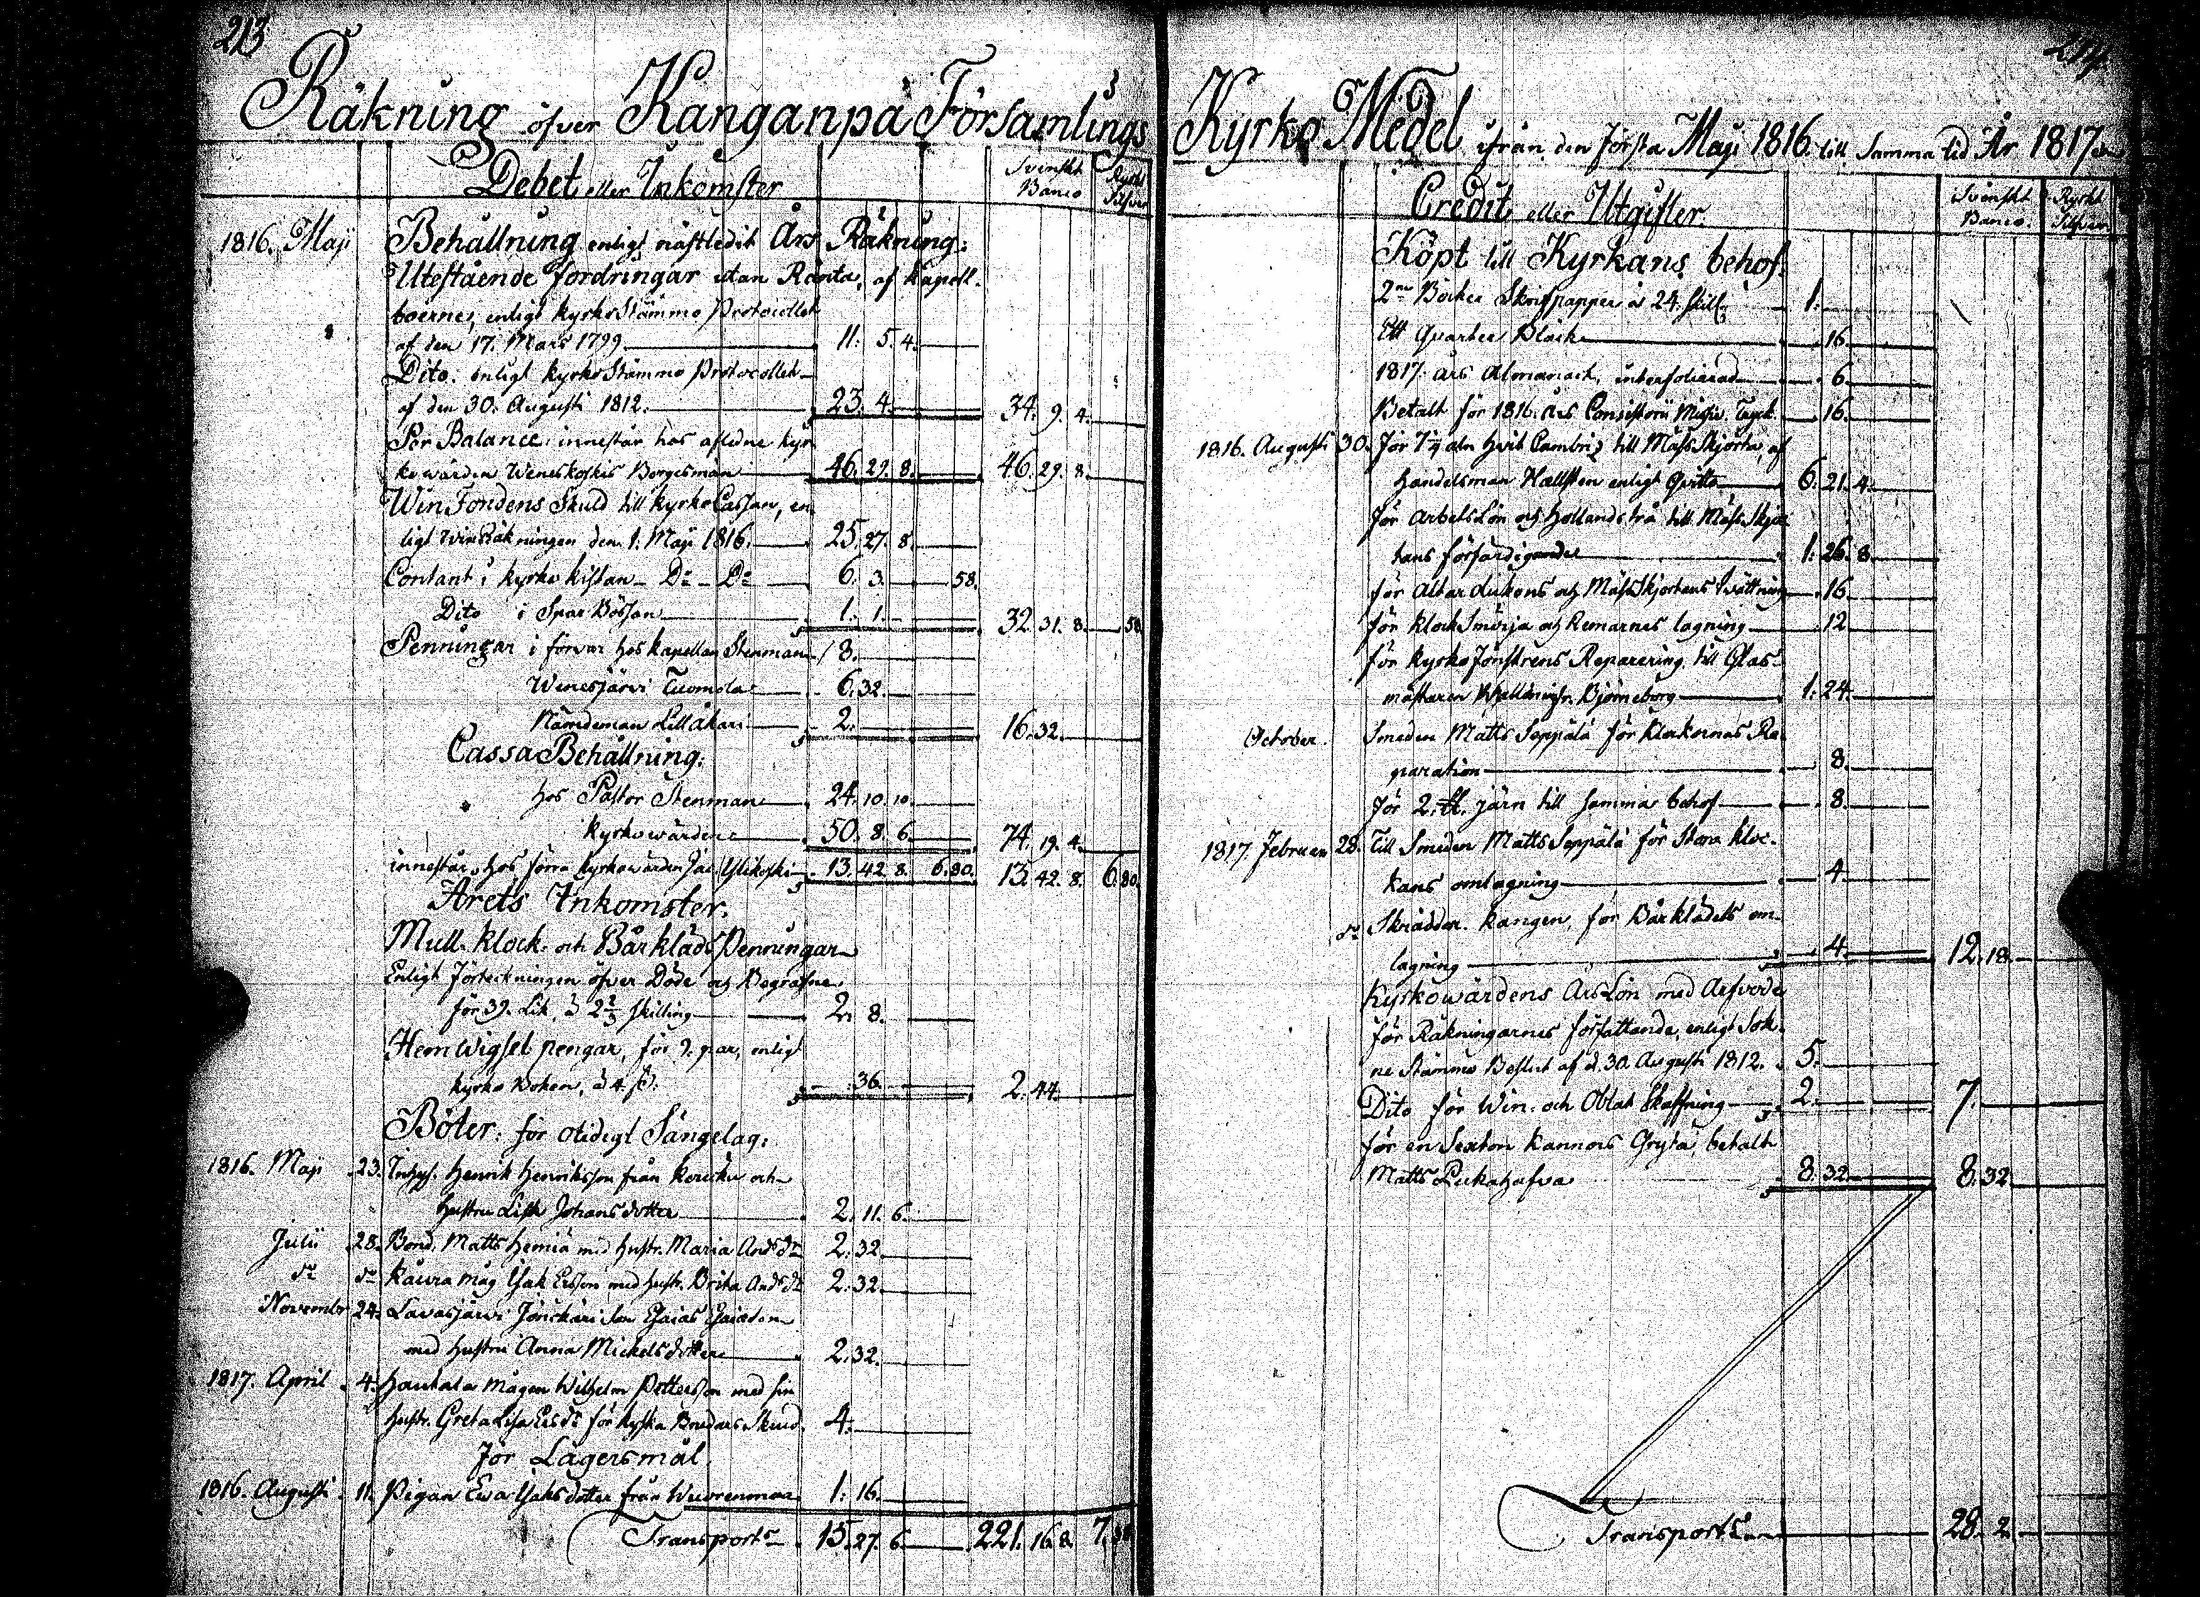 213
Räkning öfver Kanganpä Församlings
Debet eller Inkomster
Svenskt Banco
Ryskt Silfver
1816. Maji Behållning enligt nästledit Års Räkning:
Utestående fordringar utan Ränta, af Kapell-
boerne, enligt KyrkoStämmo Protocollet
af den 17. Mars 1799 11. 5. 4.
Dito. enligt KyrkoStämmo Protocollet
af den 30. Augusti 1812. 23. 4. 34. 9. 4.
Per Balance, innestår hos afledne Kyr-
kowärden Weneskoskis Borgesmän 46. 29. 8. 46. 29. 8.
WinFondens Skuld till KyrkoCassan, en-
ligt WinRäkningen den 1. Maji 1816. 25. 27. 8.
Contant i Kyrko kistan - Do - Do 6. 3. 58.
Dito i Spar Bössan 1. 1. 32. 31. 8. 58.
Penningar i förvar hos Kapellan Stenman 8.
Wenesjärvi Tuomola 6. 32.
Nämdeman Lillåkari 2. 16. 32.
Cassa Behållning:
hos Pastor Stenman 24. 10. 10.
Kyrkowärden 50. 8. 6. 74. 19. 4.
innestår hos förra Kyrkowärden Jac. Ylikoski 13. 42. 8. 6. 80. 13. 42. 8. 6. 80.
Årets Inkomster.
Mull- Klock- och Bårkläds Penningar
Enligt Förteckningen öfver Döde och Begrafne
för 39. Lik, à 2 2/3 skilling 2. 8.
Hemwigsel pengar, för 9. par, enligt
Kyrko Boken, à 4. s. 36. 2. 44.
Böter: för otidigt Sängelag:
1816. Maji 23. Inhys. Henrik Henriksson från Koricku och
hustru Lisa Johansdotter 2. 11. 6.
Julii 28. Bond. Matts Hemiä med hustr. Maria Ands dr 2. 32.
do do Kaura måg Isak Ersson med hustr. Brita Ands dr 2. 32.
Novembr 24. Lavasjärvi Jönckäri Son Esaias Esaiason
med hustru Anna Mickelsdotter 2. 32.
1817. April 4. Hautala mågen Wilhelm Pettersson med sin
hustr. Greta Lisa Ers dr för kyska Brudars Skrud 4.
För Lägersmål.
1816. Augusti 11. Pigan Ewa Isaksdotter från Wuorenmaa 1. 16.
Transport 15. 27. 6. 221. 16. 8. 7.
Kyrko Medel ifrån den första Maji 1816. till samma tid År 1817.
Credit eller Utgifter.
Svenskt Banco.
Ryskt Silfver.
Köpt till Kyrkans behof.
2ne Böcker Skrifpapper à 24. skill. 1.
Ett Quarter Bläck 16.
1817. års Almanach, interfolierad 6.
Betalt för 1816. års Consistorii Missiv. Tryck 16.
1816. Augusti 30. För 7 1/4 aln hvit Cambric till MässSkjorta, af
handelsman Hællsten enligt Qvitto 6. 21. 4.
för arbetslön och hollandstrå till MässSkjor-
tans förfärdigande 1. 26. 8.
för Altardukens och MässSkjortans twättning 16.
för KlockSmörja och Remarnes lagning 12.
för KyrkoFönstrens Reparering, till Glas-
mästaren i Björneborg 1. 24.
October. Smeden Matts Seppälä för klockornas Re-
paration 8.
För 2. järn till samma behof 8.
1817. Februari 28. Till Smeden Matts Seppälä för Stora kloc-
kans omlagning 4.
do Skräddar. Kangen, för Bårklädets om-
lagning 4. 12. 18.
Kyrkowärdens ÅrsLön med Arfvode
för Räkningarnes författande, enligt Sok-
ne Stämmo Beslut af d. 30. Augusti 1812. 5.
Dito för Win- och Oblat Skaffning 2. 7.
för en Sexton kannors Gryta, betalt
Matts 8. 32. 8. 32.
Transport 28. 2.